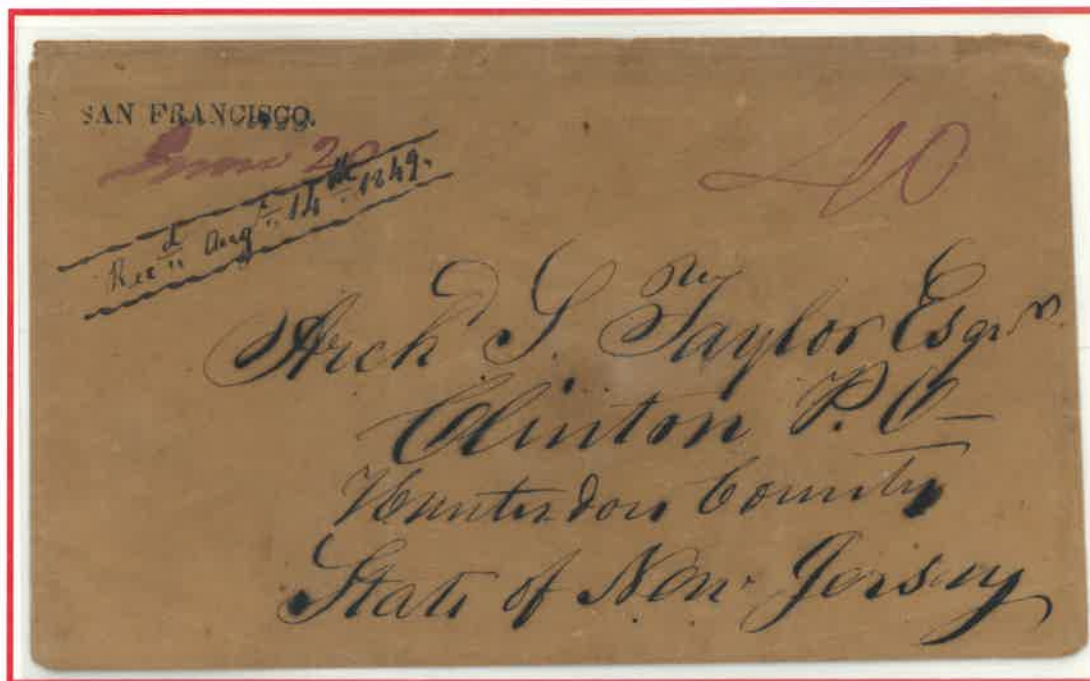 SAN FRANCISCO.
June 20
40
Rec'd Augt. 14th 1849.
Arch'd S. Taylor Esqr
Clinton P. O
Hunterdon County
State of New Jersey